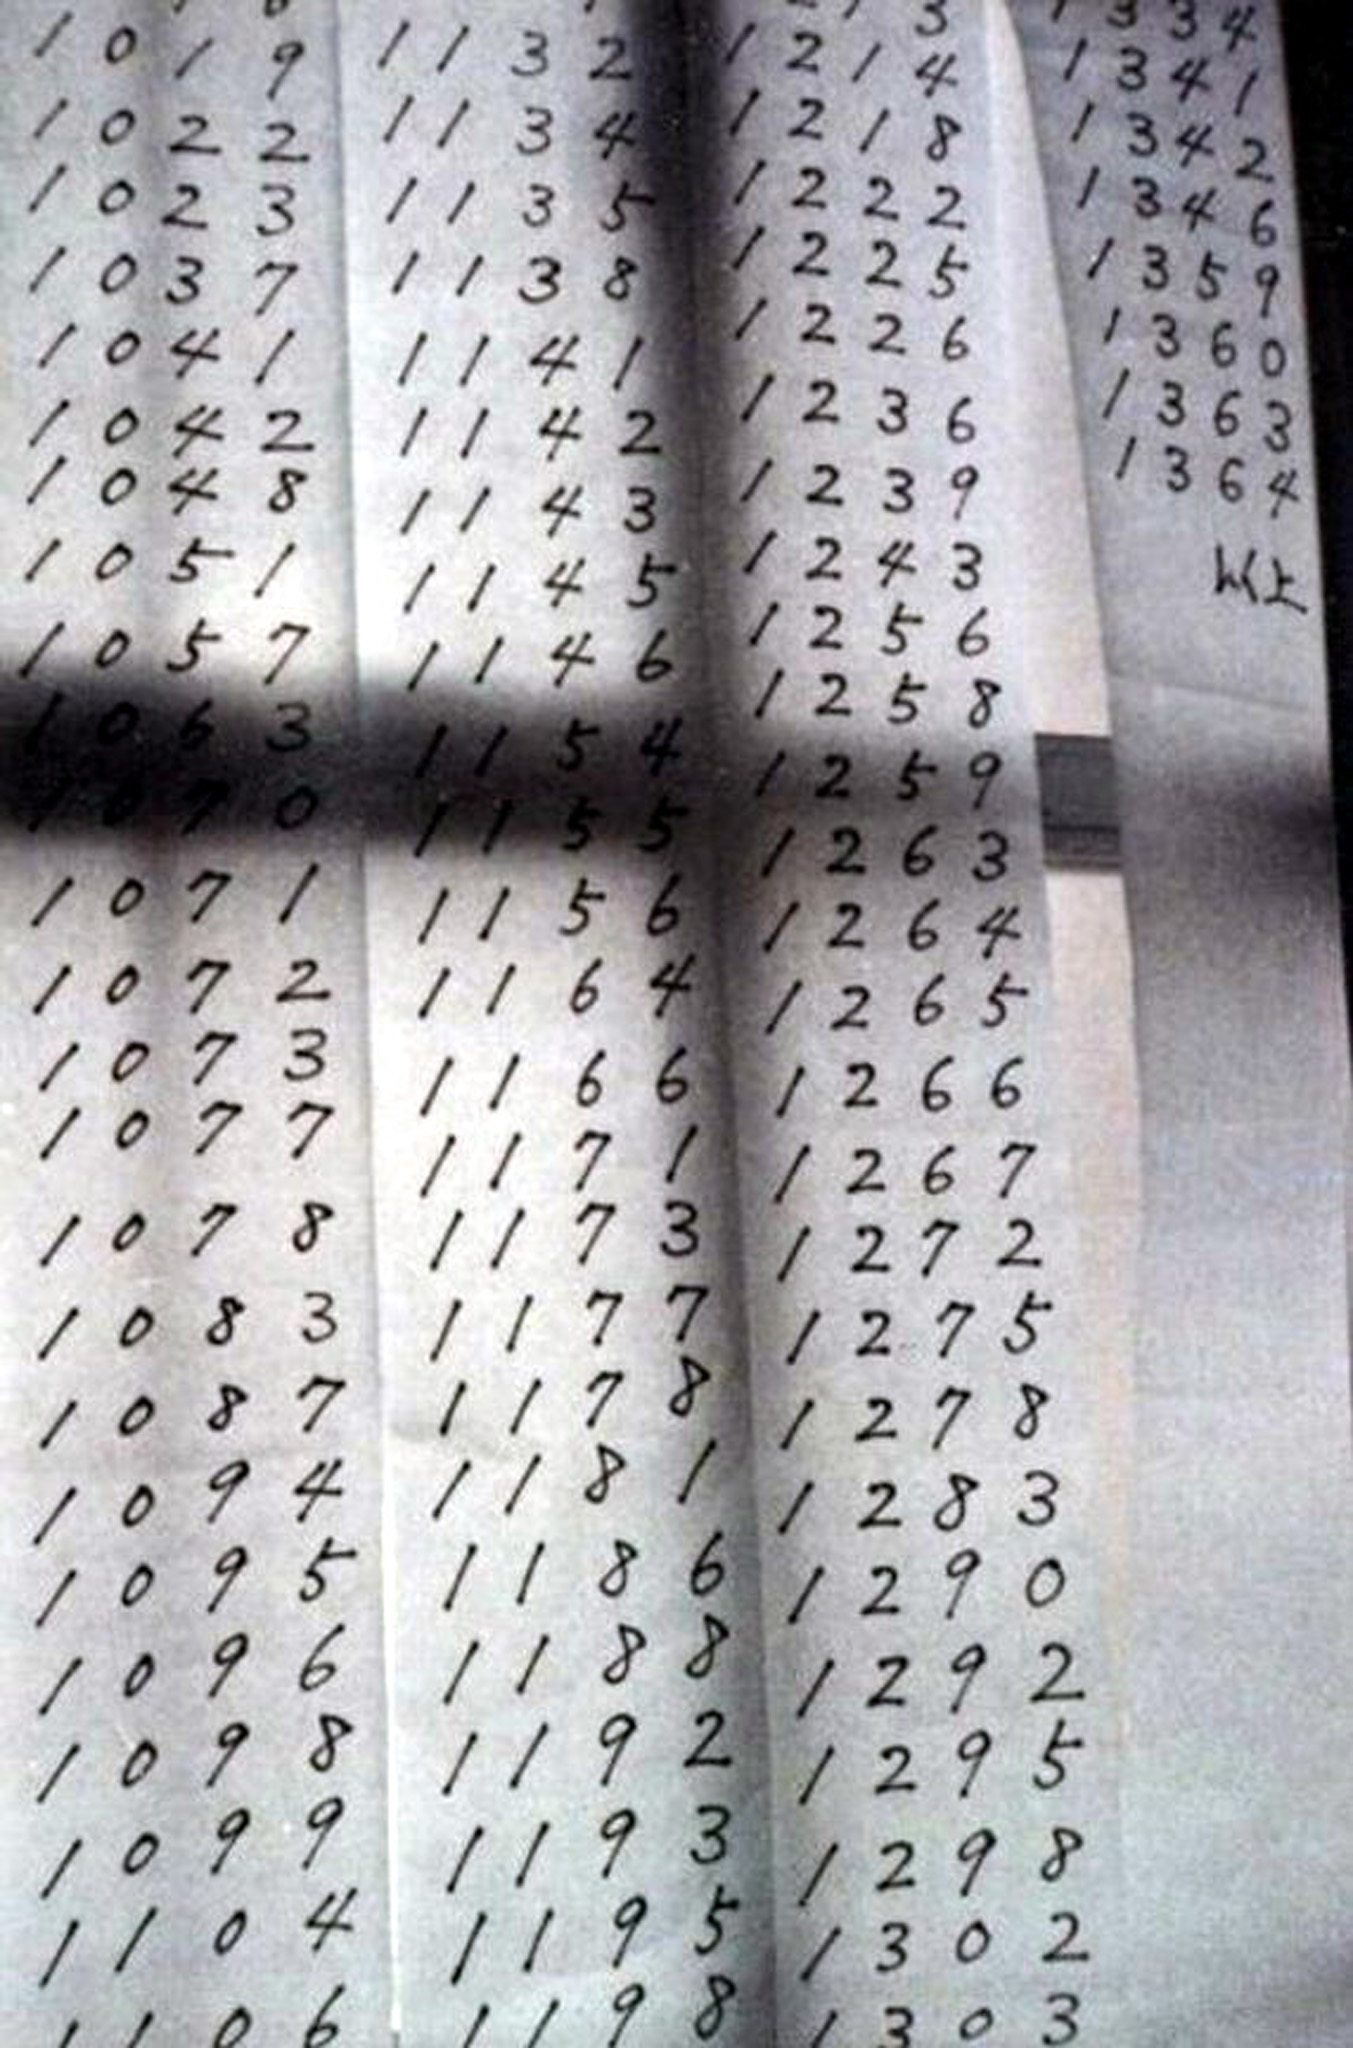 1019
1022
1023
1037
1041
1042
1048
1051
1057
1063
1070
1071
1072
1073
1077
1078
1083
1087
1094
1095
1096
1098
1099
1104
1106
1132
1134
1135
1138
1141
1142
1143
1145
1146
1154
1155
1156
1164
1166
1171
1173
1177
1178
1181
1186
1188
1192
1193
1195
1198
3
1214
1218
1222
1225
1226
1236
1239
1243
1256
1258
1259
1263
1264
1265
1266
1267
1272
1275
1278
1283
1290
1292
1295
1298
1302
1303
1334
1341
1342
1346
1359
1360
1363
1364
以上